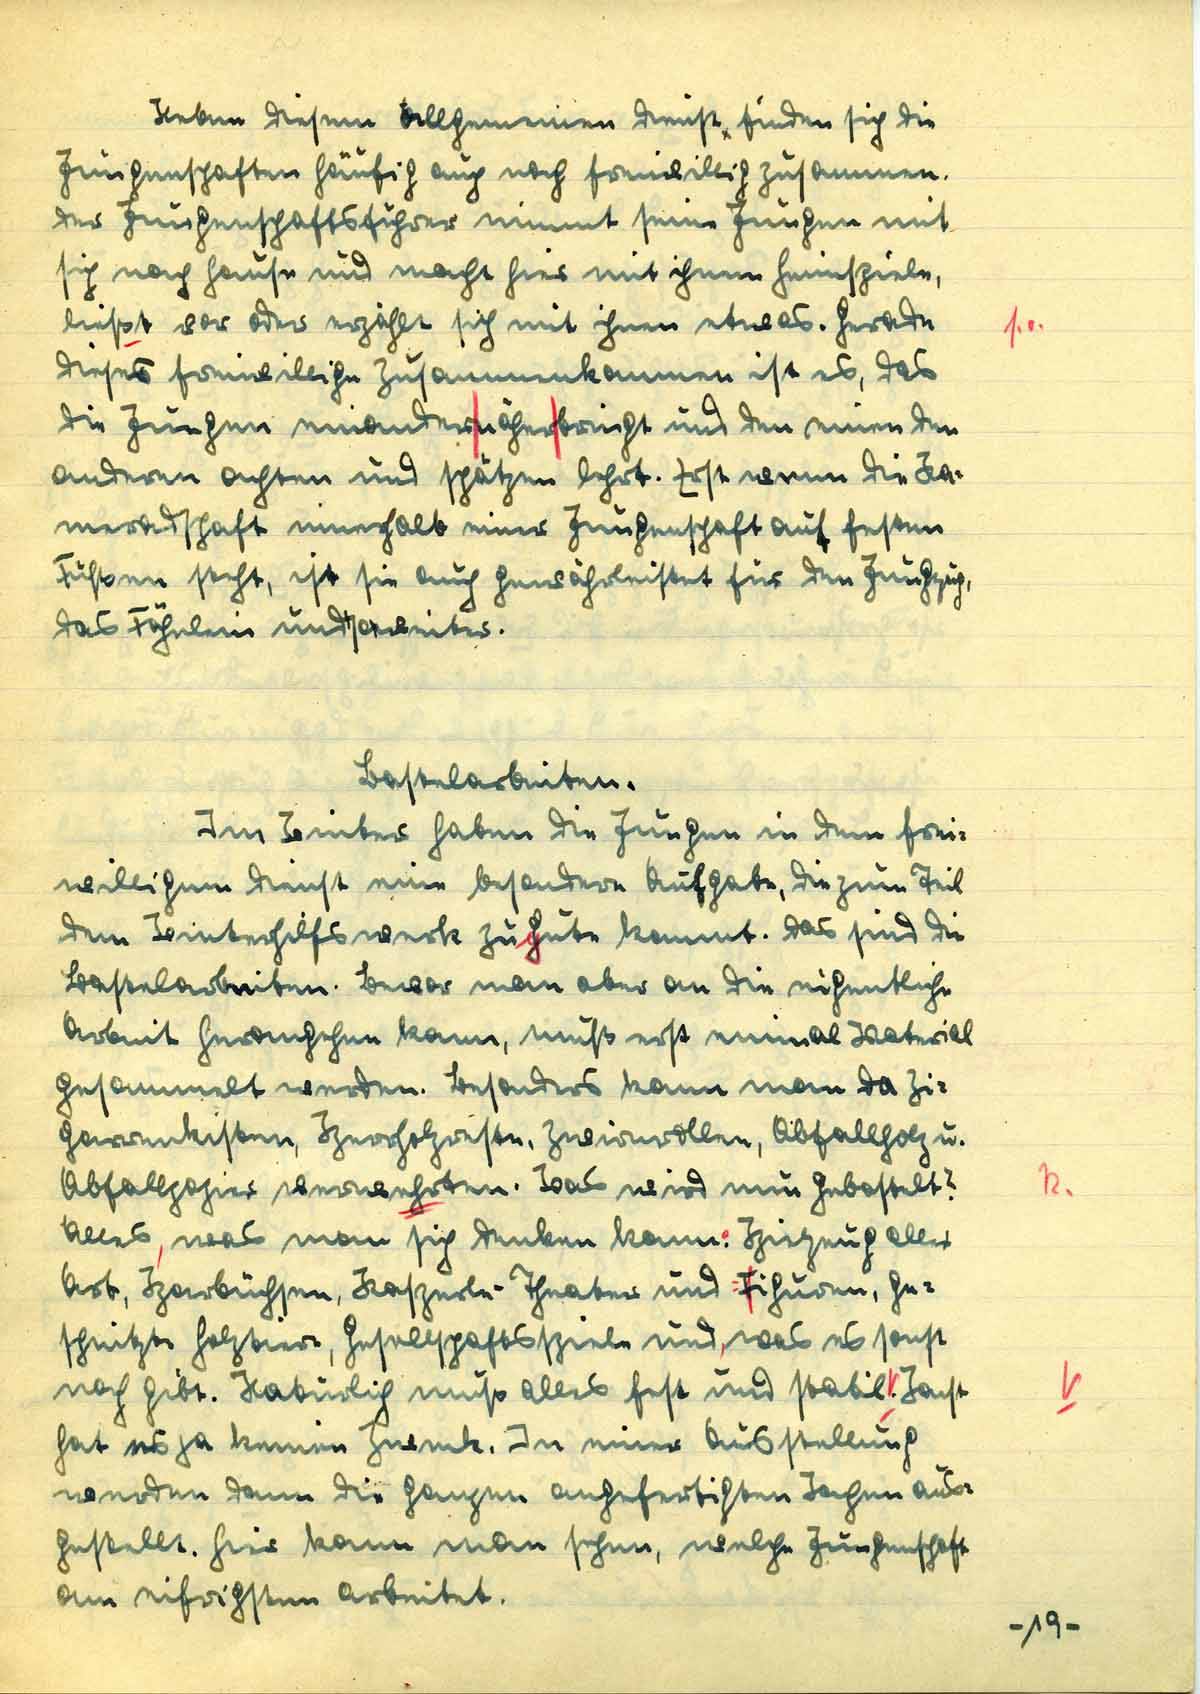 Neben diesem allgemeinen Dienst, finden sich die
Jungenschaften häufig auch noch freiwillig zusammen.
Der Jungenschaftsführer nimmt seine Jungen mit
sich nach Hause und macht hier mit ihnen Heimspiele,
ließt vor oder erzählt sich mit ihnen etwas. Gerade
dieses freiwillige Zusammenkommen ist es, das
die Jungen einander näherbringt und den einen den
anderen achten und schätzen lehrt. Erst wenn die Ka-
meradschaft innerhalb einer Jungenschaft auf festen
Füßen steht, ist sie auch gewährleistet für den Jungzug,
das Fähnlein und so weiter.
s.o.
Bastelarbeiten.
Im Winter haben die Jungen in dem frei-
willigem Dienst eine besondere Aufgabe, die zum Teil
dem Winterhilfswerk zugute kommt. Das sind die
Bastelarbeiten. Bevor man aber an die eigentliche
Arbeit herangehen kann, muß erst einmal Material
gesammelt werden. Besonders kann man da Zi-
garrenkisten, Sperrholzreste, Zwirnrollen, Abfallholz u.
Abfallpapier verwehrten. Was wird nun gebastelt?
R.
Alles, was man sich denken kann: Spielzeug aller
Art, Sparbüchsen, Kasperle-Theater und -Figuren, ge-
schnitzte Holztiere, Gesellschaftsspiele und, was es sonst
noch gibt. Natürlich muß alles fest und stabil. Sonst
V
hat es ja keinen Zweck. In einer Ausstellung
werden dann die ganzen angefertigten Sachen aus-
gestellt. Hier kann man sehen, welche Jungenschaft
am eifrigsten arbeitet.
-19-